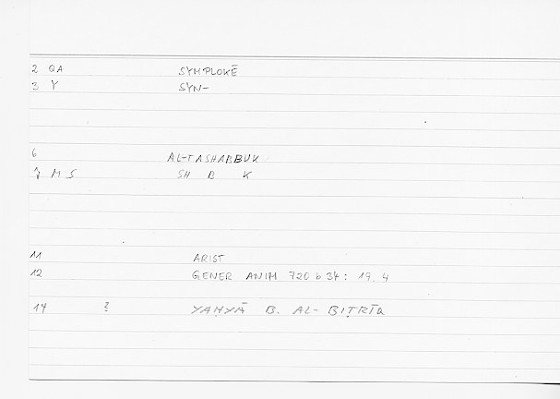 2 GA SYMPLOKĒ
3 Y SYN-
6 AL-TASHABBUK
7 M S SH B K
11 ARIST
12 GENER ANIM 720 b 34: 19. 4
14 ? YAḤYĀ B. AL-BIṬRĪQ